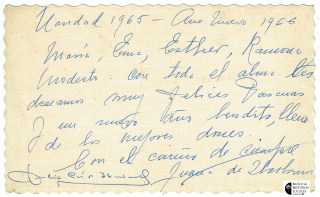 Navidad 1965 - Año Nuevo 1966
María, Ema, Esther, Ramona
Modesto: con toda el alma les
deseamos muy felices Pascuas
y un nuevo año bendito, lleno
de los mejores dones.
Con el cariño de siempre
Juana de Ibarbourou